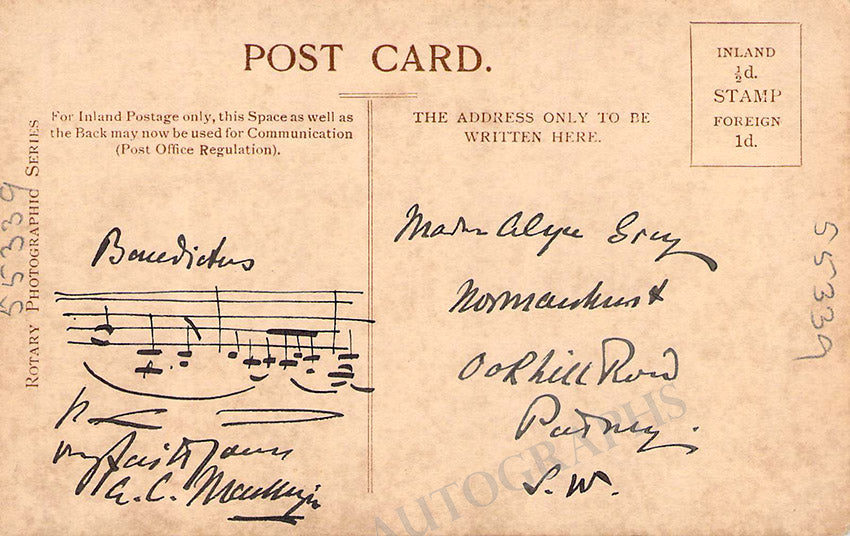 POST CARD.
INLAND
½d.
STAMP
FOREIGN
1d.
For Inland Postage only, this Space as well as
the Back may now be used for Communication
(Post Office Regulation).
THE ADDRESS ONLY TO BE
WRITTEN HERE.
ROTARY PHOTOGRAPHIC SERIES
55339
Benedictus
p
A. C. Mackenzie
Grey
Normanhurst
Oakhill Road
Putney.
S. W.
55339
AUTOGRAPHS